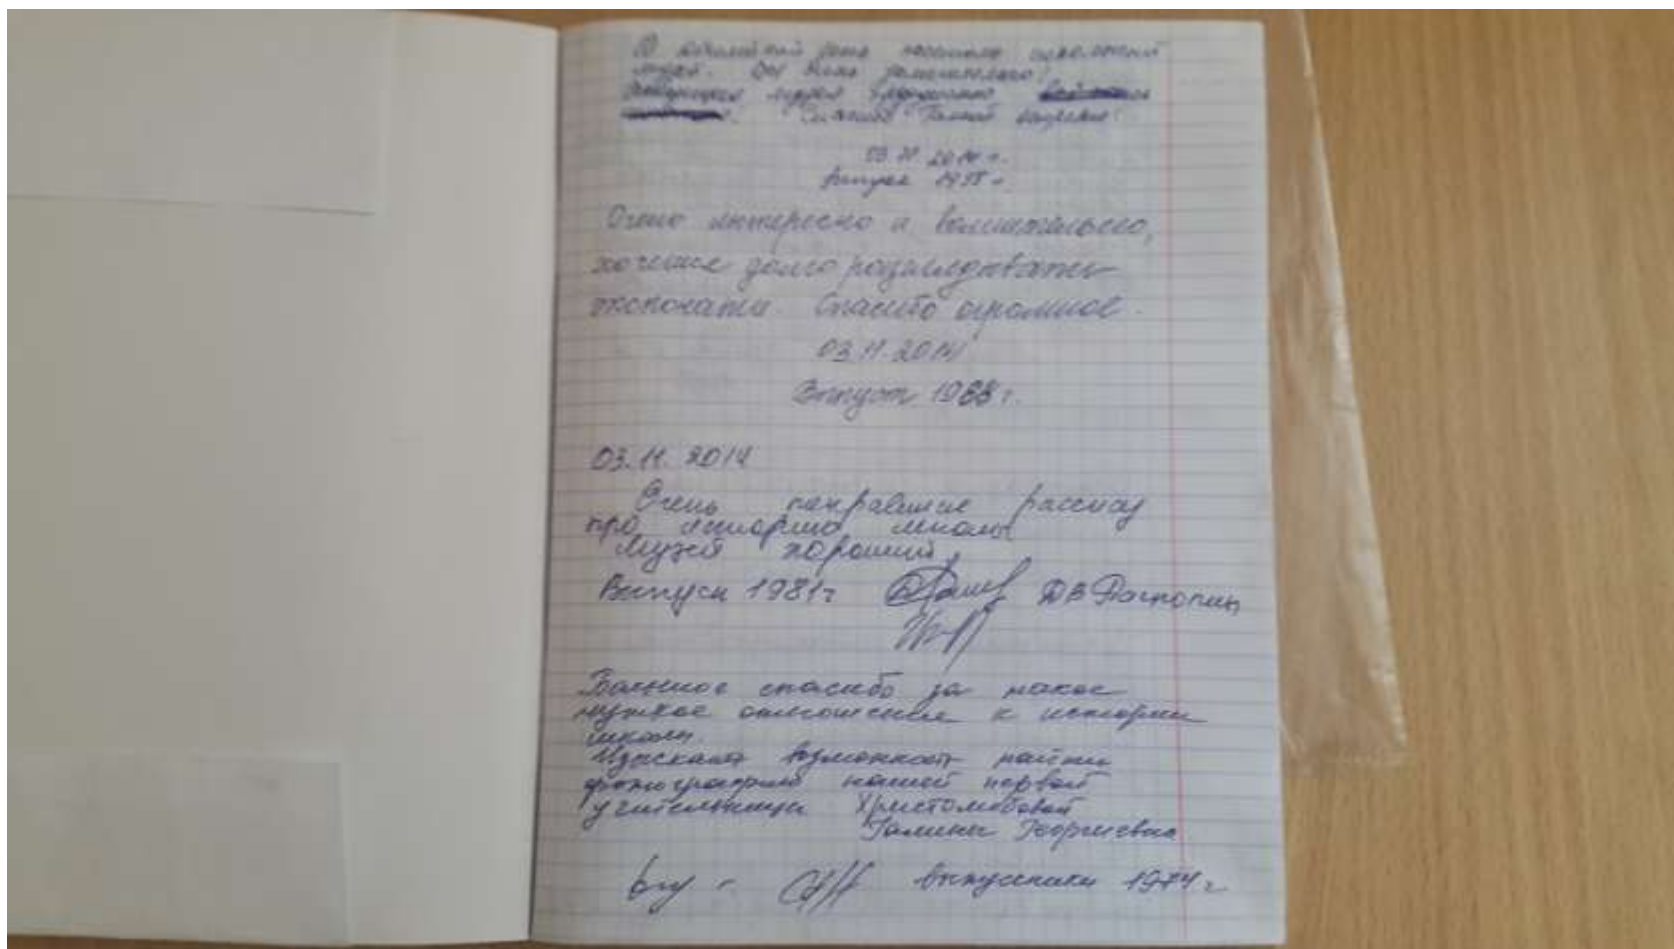 В юбилейный день посетили школьный
музей. Он очень замечательный!
музея
Спасибо Галине
03.11.2014 г.
Выпуск
Очень интересно и волнительно,
хочется долго разглядывать
экспонаты. Спасибо огромное.
03.11.2014
Выпуск 1988 г.
03.11.2014
Очень понравился рассказ
про историю школы
Музей хороший,
Выпуск 1981г ДВ Распопин
Большое спасибо за такое
чуткое отношение к истории
школы.
Изыскать возможность найти
фотографию нашей первой
учительницы Христолюбовой
Галины Георгиевны
выпускники 1974 г